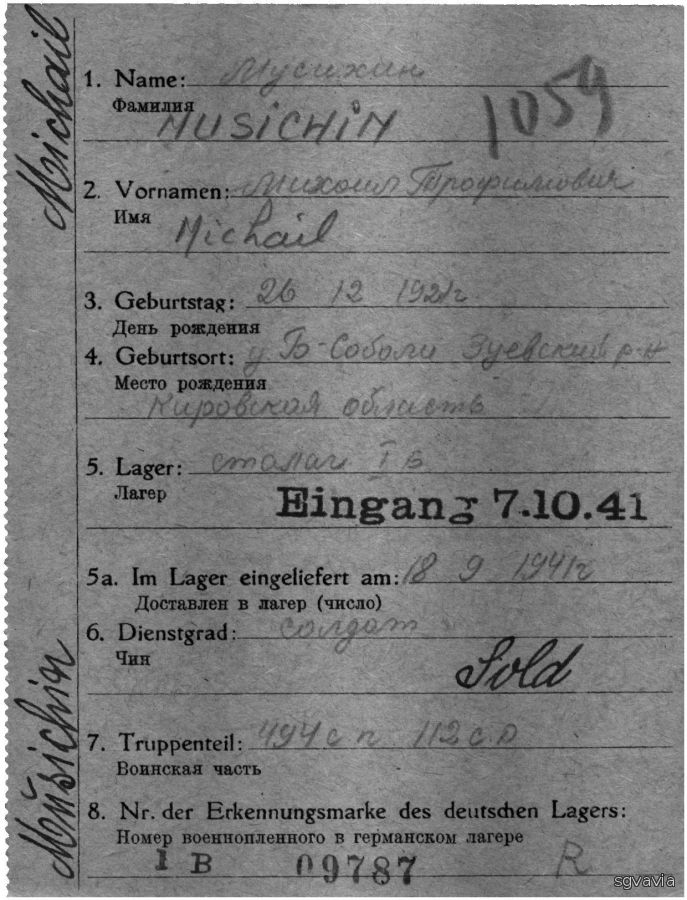 Michail
Musichin
1. Name: Мусихин
Фамилия
MUSICHIN
1054
2. Vornamen: Михаил Трофимович
Имя
Michail
3. Geburtstag: 26 12 1921г
День рождения
4. Geburtsort: Б-Соболи Зуевский р-н
Место рождения
Кировская область
5. Lager: сталаг I в
Лагер
Eingang 7.10.41
5a. Im Lager eingeliefert am: 18 9 1941г
Доставлен в лагер (число)
6. Dienstgrad: солдат
Чин
Sold
7. Truppenteil: 494 с п 112 с д
Воинская часть
8. Nr. der Erkennungsmarke des deutschen Lagers:
Номер военнопленного в германском лагере
I B 09787
R
sgvavia